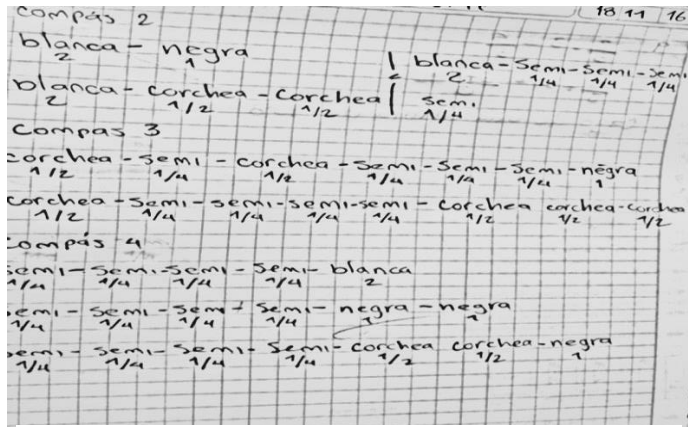 18 11 16
compás 2
blanca - negra
2 1
blanca - corchea - corchea
2 1/2 1/2
blanca - semi - semi - semi
2 1/4 1/4 1/4
semi.
1/4
Compas 3
corchea - semi - corchea - semi - semi - semi - negra
1/2 1/4 1/2 1/4 1/4 1/4 1
corchea - semi - semi - semi - semi - corchea corchea - corchea
1/2 1/4 1/4 1/4 1/4 1/2 1/2 1/2
compás 4
semi - semi - semi - semi - blanca
1/4 1/4 1/4 1/4 2
semi - semi - semi - semi - negra - negra
1/4 1/4 1/4 1/4 1 1
semi - semi - semi - semi - corchea corchea - negra
1/4 1/4 1/4 1/4 1/2 1/2 1